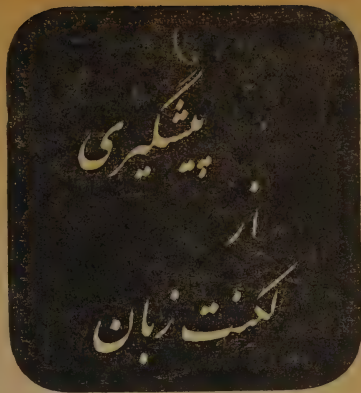 پیشگیری
از
لکنت زبان